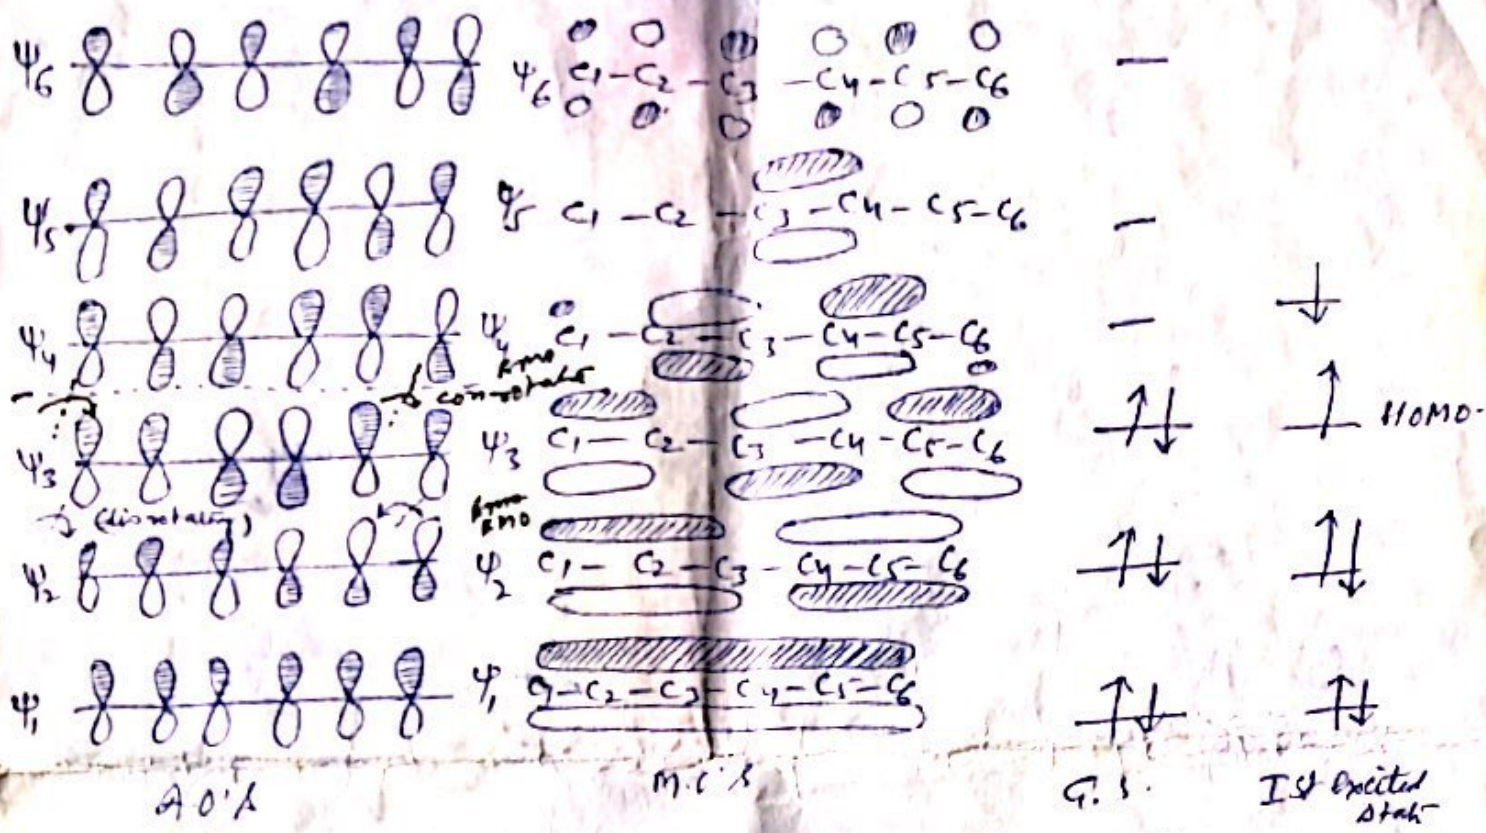 ψ6 ψ6 C1-C2-C3-C4-C5-C6
ψ5 ψ5 C1-C2-C3-C4-C5-C6
ψ4 ψ4 C1-C2-C3-C4-C5-C6
conrotator
ψ3 ψ3 C1-C2-C3-C4-C5-C6 HOMO.
(disrotatory)
ψ2 ψ2 C1-C2-C3-C4-C5-C6
ψ1 ψ1 C1-C2-C3-C4-C5-C6
A O's M.O's G.S. Ist Excited
State